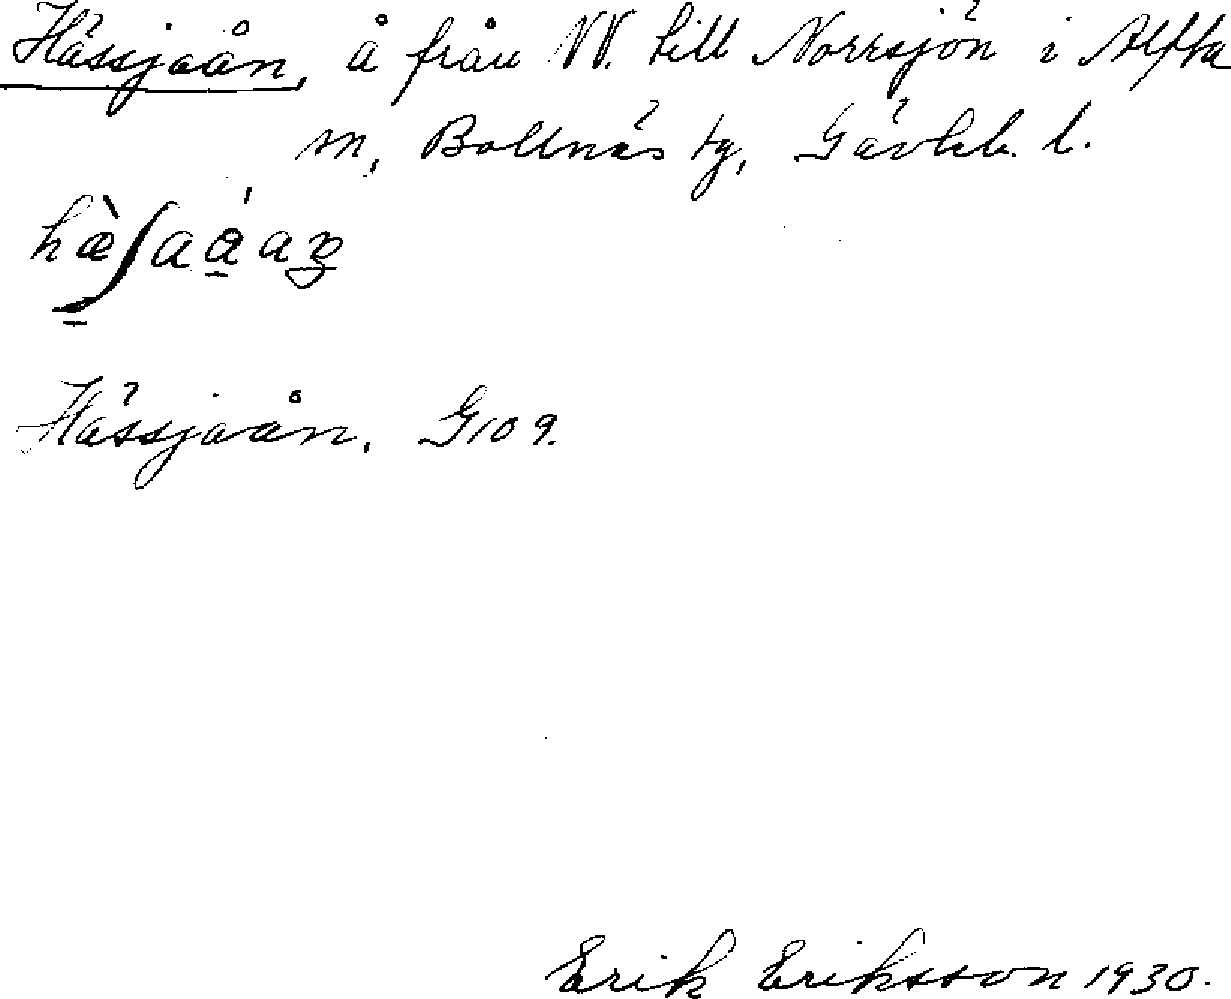 Hässjaån, å från NV. till Norrsjön i Alfta
sn, Bollnäs tg, Gävleb. l.
Hässjaån. G109.
Erik Eriksson 1930.